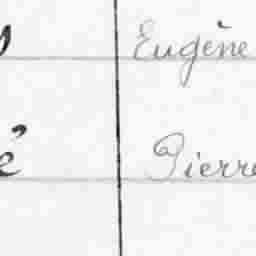 Eugène
Pierre